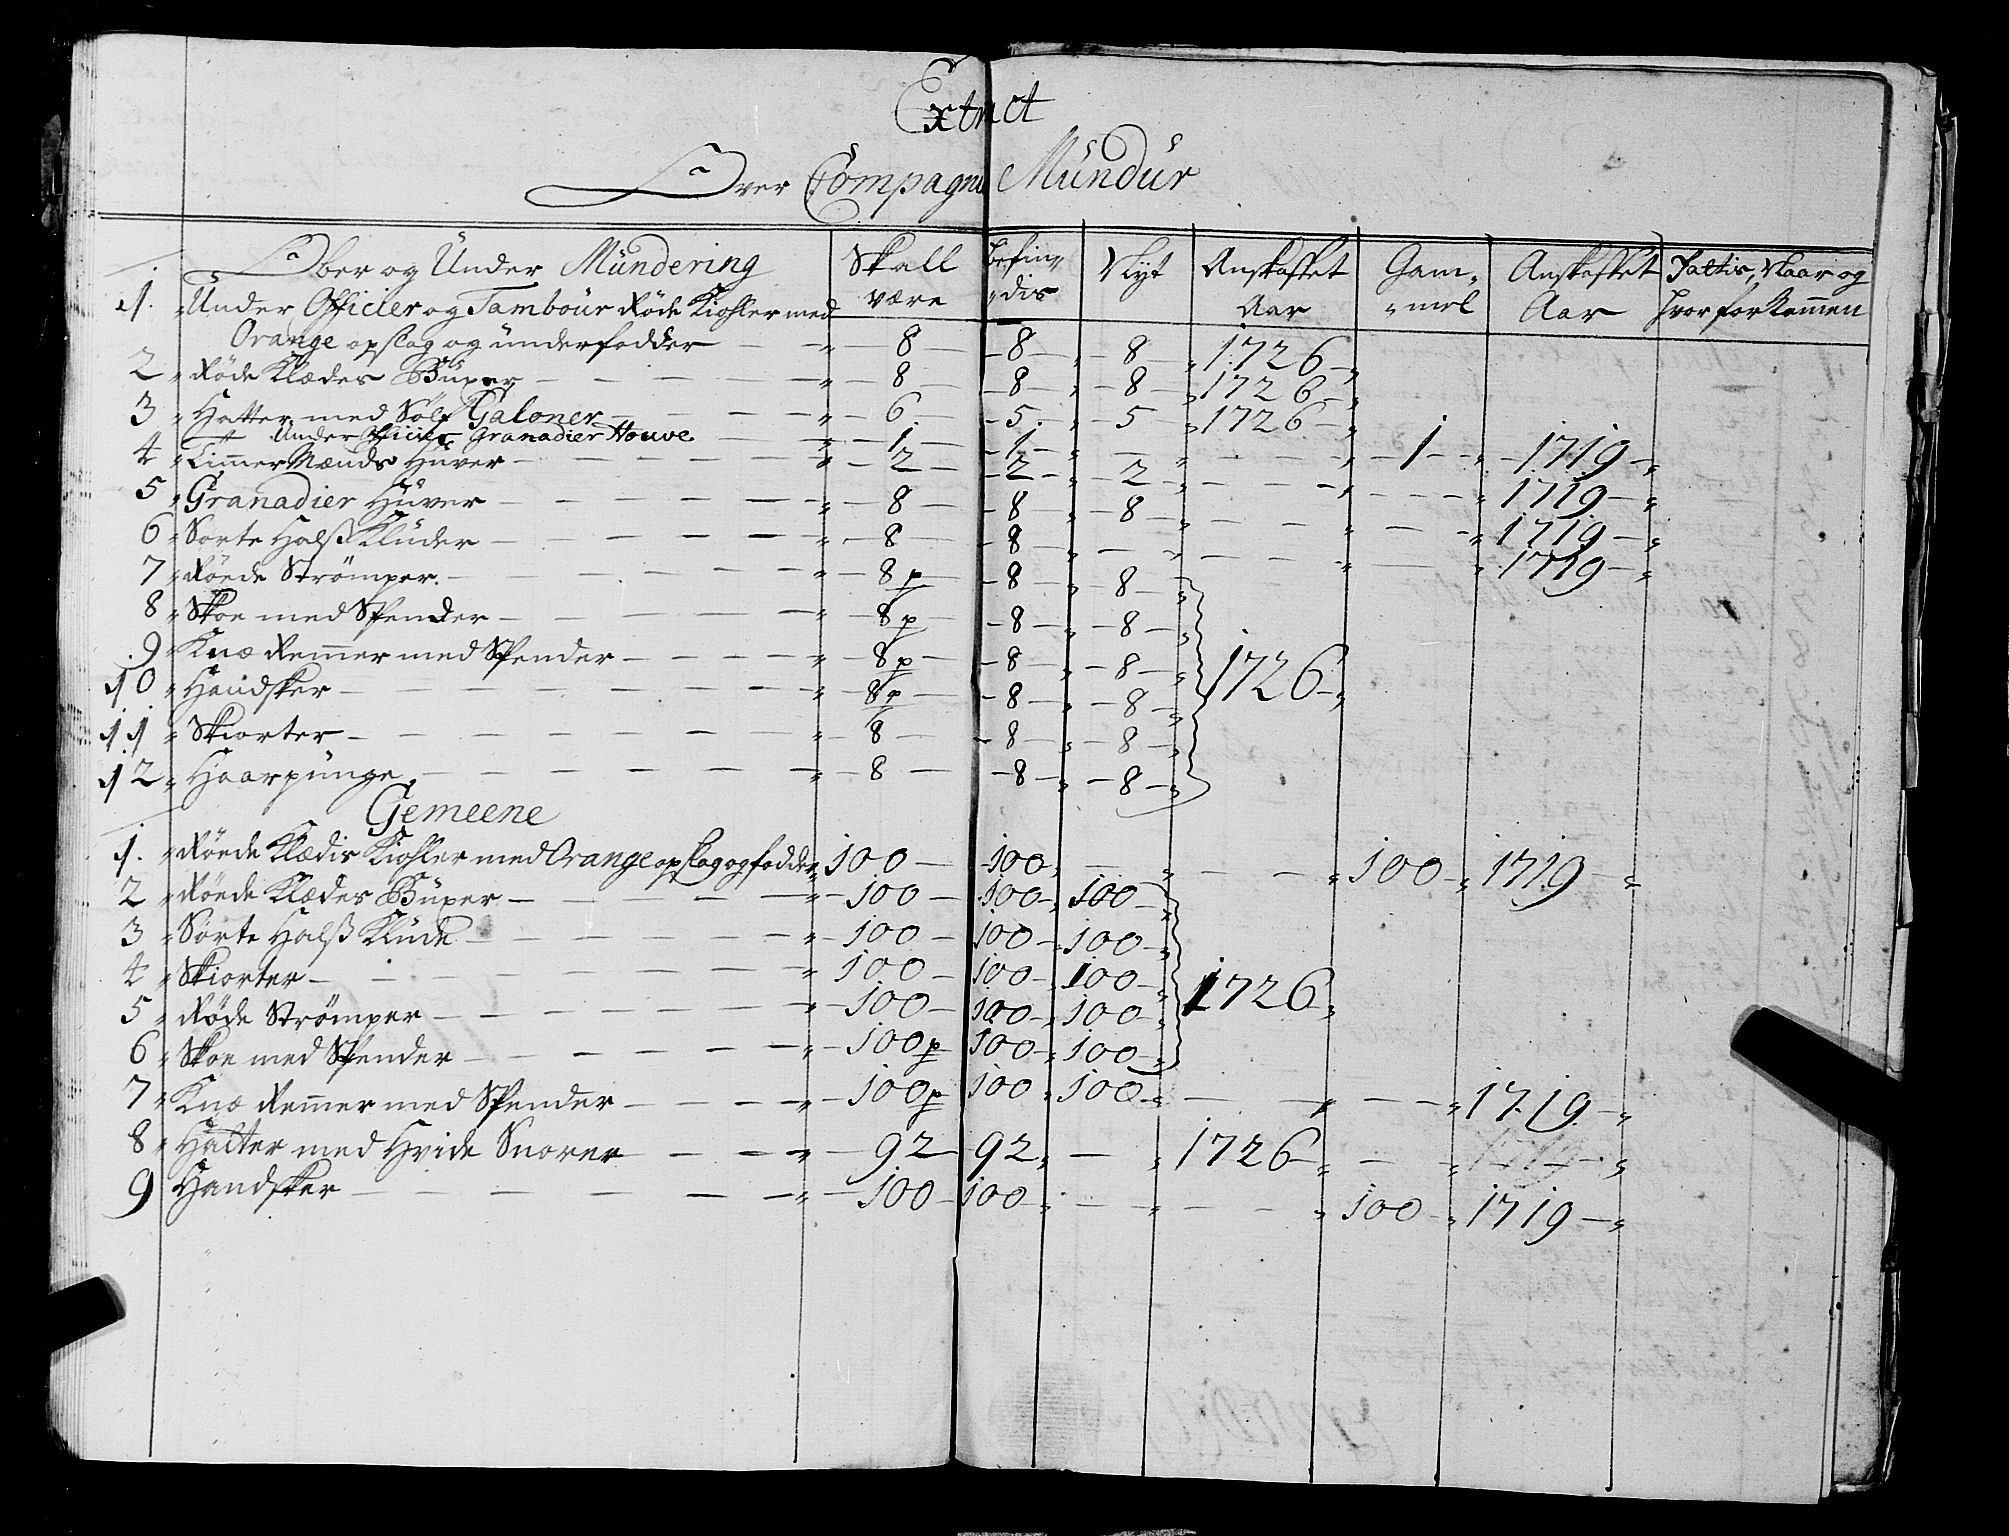 Extract
Over Compagni Mündür
Ober og Ünder Mündering | Skall være | befin„ „dis | Nÿt | Anskaffet Aar | Gam„ „mel | Anskaffet Aar | Fattis, Naar og hvor forkommen
1. Ünder Officier og Tambour Röde Kiohler med
Orange opslag og ünderfodder — 8 — 8 — 8 — 1726
2 Röde Klædes Büxer — 8 — 8 — 8 — 1726
3 Hatter med Sölf Galoner — 6 — 5 — 5 — 1726
Ünder Officier Granadier Houve — 1 — 1 — — — 1 — 1719
4 Timer Mænds Hüver — 2 — 2 — 2 — — — 1719
5 Granadier Hüver — 8 — 8 — 8 — — — 1719
6 Sorte Halß Klüder — 8 — 8 — — — — 1719
7 Röede Strömper — 8 p — 8 — 8
8 Skoe med Spender — 8 p — 8 — 8
9 Knæ Remer med Spender — 8 p — 8 — 8 — 1726
10 Handsker — 8 p — 8 — 8
11 Skiorter — 8 — 8 — 8
12 Haarpünge — 8 — 8 — 8
Gemeene
1. Röede Klædis Kiohler med Orange opslag og fodder 100 — 100 — — — 100 — 1719
2 Röede Klædes Büxer — 100 — 100 — 100
3 Sorte Halß Klüde — 100 — 100 — 100
4 Skiorter — 100 — 100 — 100 — 1726
5 Röde Strömper — 100 — 100 — 100
6 Skoe med Spender — 100 p — 100 — 100
7 Knæ Remer med Spender — 100 p — 100 — 100 — — — 1719
8 Hatter med Hvide Snorer — 92 — 92 — — 1726 — — 1719
9 Handsker — 100 — 100 — — — 100 — 1719